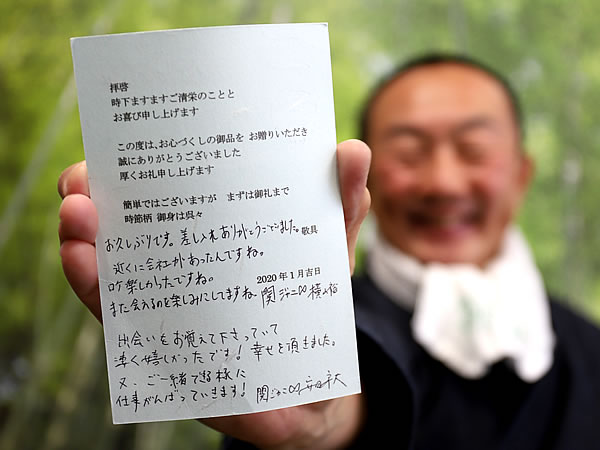 拝啓
時下ますますご清栄のことと
お喜び申し上げます
この度は、お心づくしの御品を お贈りいただき
誠にありがとうございました
厚くお礼申し上げます
簡単ではございますが まずは御礼まで
時節柄 御身は呉々
お久しぶりです。差し入れありがとうございました。敬具
近くに会社があったんですね。
2020年1月吉日
また会えるのを楽しみにしてますね 関ジャニ∞ 横山裕
出会いをお覚えて下さっていて
凄く嬉しかったです! 幸せを頂きました。
又、ご一緒できる様に
仕事がんばっていきます! 関ジャニ∞ 安田章大